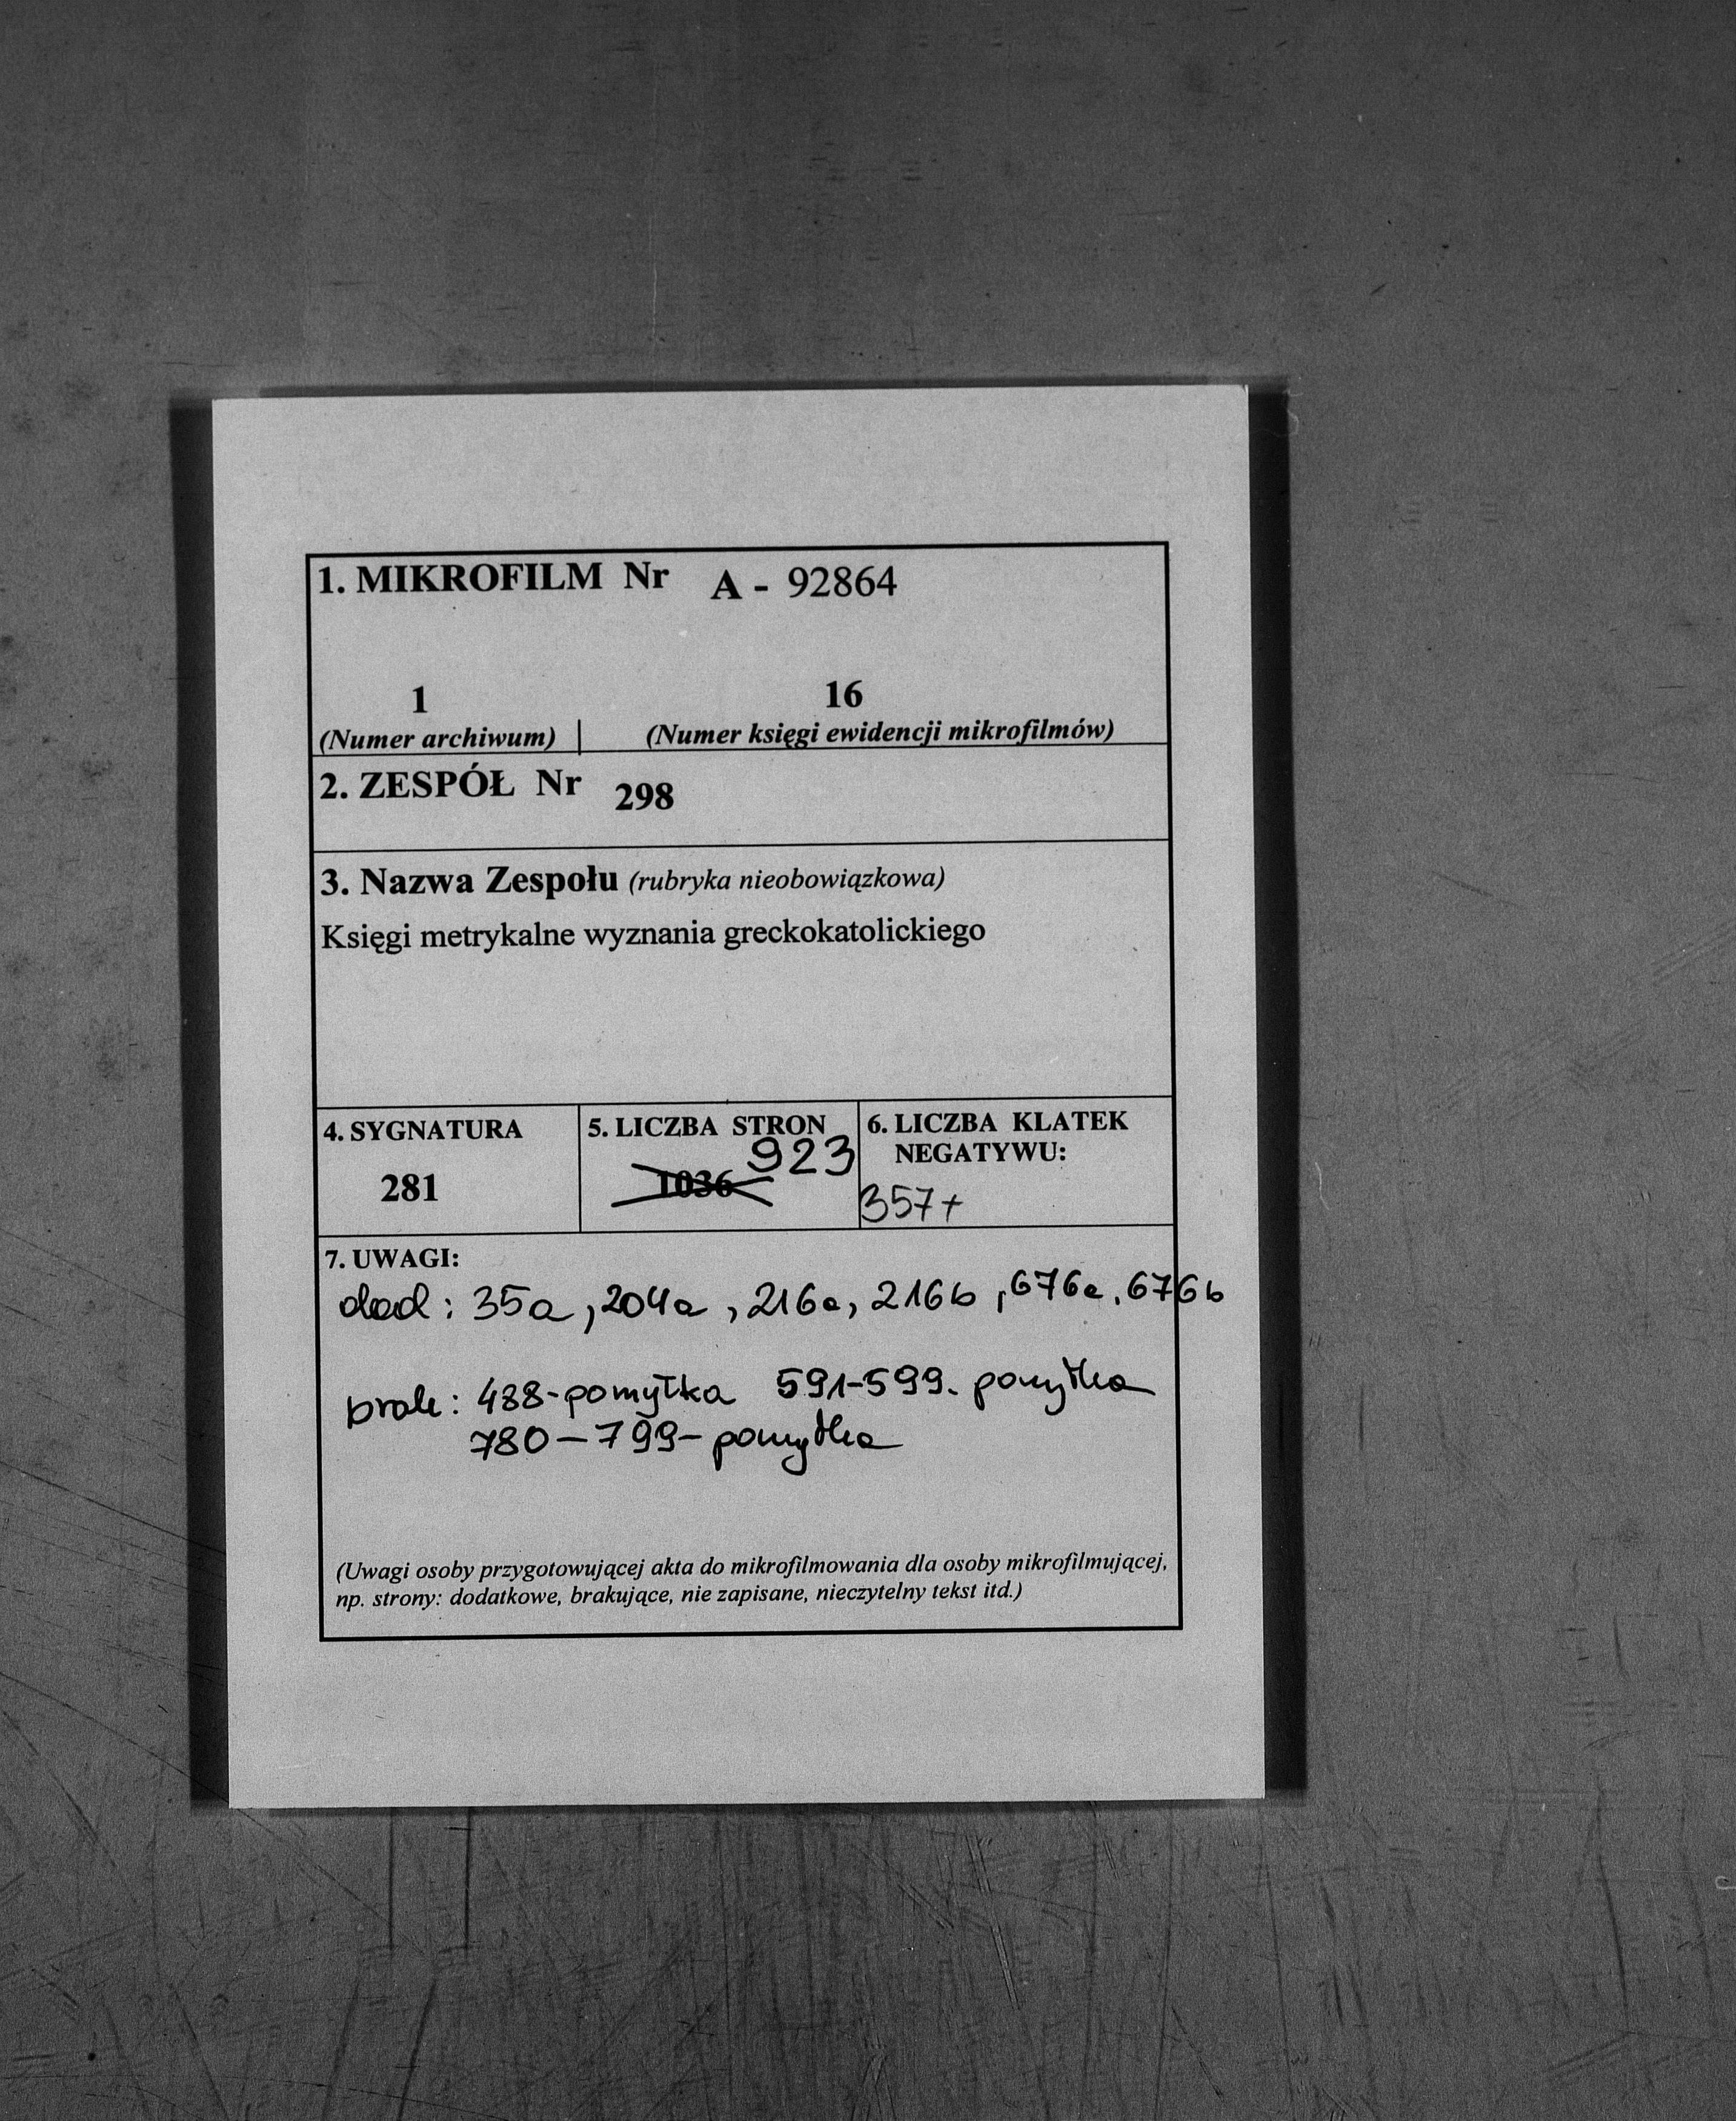 1. MIKROFILM Nr A - 92864
1 16
(Numer archiwum) (Numer księgi ewidencji mikrofilmów)
2. ZESPÓŁ Nr 298
3. Nazwa Zespołu (rubryka nieobowiązkowa)
Księgi metrykalne wyznania greckokatolickiego
4. SYGNATURA
281
5. LICZBA STRON
923
1036
6. LICZBA KLATEK
NEGATYWU:
357+
7. UWAGI:
dod: 35a, 204a, 216a, 216b, 676a, 676b
brak: 488-pomyłka 591-599- pomyłka
780-799- pomyłka
(Uwagi osoby przygotowującej akta do mikrofilmowania dla osoby mikrofilmującej,
np. strony: dodatkowe, brakujące, nie zapisane, nieczytelny tekst itd.)